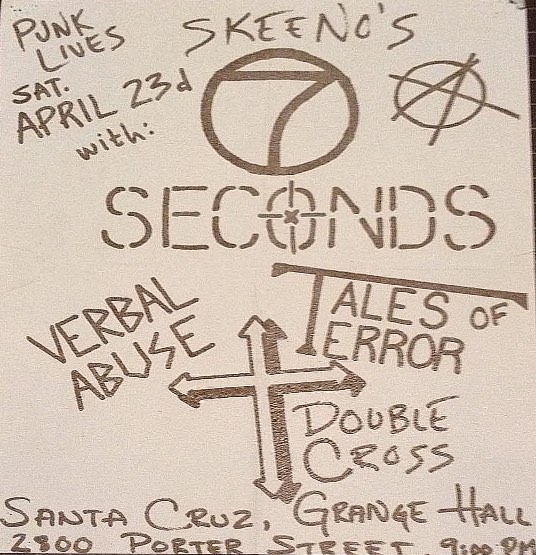 PUNK
LIVES
SAT.
APRIL 23d
with:
SKEENO'S
7
SECONDS
VERBAL
ABUSE
TALES OF
TERROR
DOUBLE
CROSS
SANTA CRUZ, GRANGE HALL
2800 PORTER STREET 9:00 PM